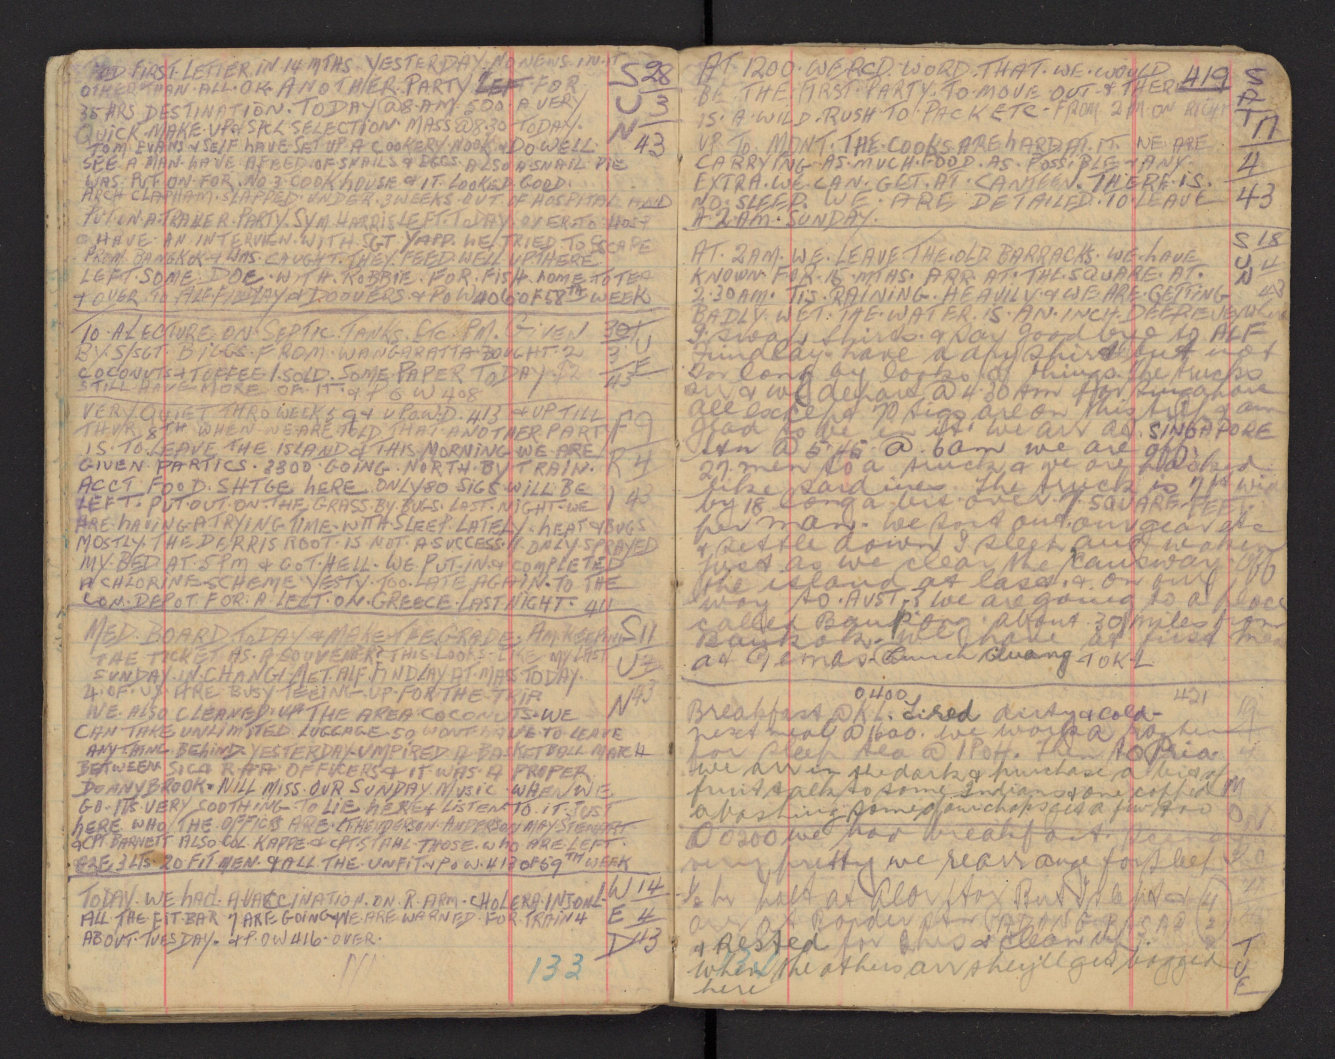 HAD FIRST LETTER IN 14 MTHS. YESTERDAY. NO NEWS IN IT
OTHER THAN ALL. OK. ANOTHER PARTY LEFT FOR
35 HRS DESTINATION. TODAY @ 8. AM. 500. A VERY
QUICK MAKE UP & SICK SELECTION. MASS @ 8.30 TODAY.
TOM EVANS & SELF HAVE SET UP A COOKERY NOOK & DO WELL.
SEE A MAN HAVE A FEED OF SNAILS & EGGS. ALSO A SNAIL PIE
WAS PUT ON FOR NO 3 COOKHOUSE & IT LOOKED GOOD.
ARCH CLAPHAM. SLAPPED UNDER 3 WEEKS OUT OF HOSPITAL AND
PUT IN A TRAILER PARTY. SYM HARRIS LEFT TODAY OVER TO
HAVE AN INTERVIEW WITH SGT. YAPP. HE TRIED TO ESCAPE
FROM BANGKOK & WAS CAUGHT. THEY FEED WELL UP THERE
LEFT SOME DOE WITH ROBBIE FOR FISH HOME TO TEA
& OVER TO ALF FINDLAY & DOOVERS & POW 406 OF 58TH WEEK
SUN 28 3 43
TO A LECTURE ON SEPTIC TANKS. ETC. PM. GIVEN
BY S/SGT. BIGGS FROM WANGARATTA BOUGHT 2
COCONUTS & TOFFEE I SOLD SOME PAPER TODAY. $2
STILL HAVE MORE OF IT & POW 408
30 3 43 TUE
VERY QUIET THRO WEEKS & UPOWD. 413 & UP TILL
THUR 8TH WHEN WE ARE TOLD THAT ANOTHER PARTY
IS TO LEAVE THE ISLAND & THIS MORNING WE ARE
GIVEN PARTICS. 3300 GOING NORTH BY TRAIN.
ACCT FOOD SHTGE HERE. ONLY 80 SIGS WILL BE
LEFT. PUT OUT ON THE GRASS BY BUGS LAST NIGHT. WE
ARE HAVING A TRYING TIME WITH SLEEP LATELY. HEAT & BUGS
MOSTLY. THE DERRIS ROOT IS NOT A SUCCESS. I ONLY SPRAYED
MY BED AT 5 PM & GOT HELL. WE PUT IN & COMPLETED
A CHLORINE SCHEME YESTY. TOO LATE AGAIN. TO THE
CON. DEPOT FOR A LECT ON GREECE LAST NIGHT. 411
FRI 9 4 43
MED. BOARD TODAY & MAKE THE GRADE. AM KEEPING
THE TICKET AS A SOUVENIR. THIS LOOKS LIKE MY LAST
SUNDAY IN CHANGI. MET ALF FINDLAY AT MASS TODAY.
4 OF US ARE BUSY TEEING UP FOR THE TRIP
WE ALSO CLEANED UP THE AREA COCONUTS. WE
CAN TAKE UNLIMITED LUGGAGE SO WONT HAVE TO LEAVE
ANYTHING BEHIND. YESTERDAY UMPIRED A BASKETBALL MATCH
BETWEEN SIGS & RAA OFFICERS & IT WAS A PROPER
DONNYBROOK. WILL MISS OUR SUNDAY MUSIC WHEN WE
GO. ITS VERY SOOTHING TO LIE HERE & LISTEN TO IT. JUST
HERE WHO THE OFFICERS ARE. LT HENDERSON. ANDERSON MAY STEWART
& CPT BARNETT ALSO COL KAPPE & CPT STAHL THOSE WHO ARE LEFT
ARE 3 LTS 20 FIT MEN & ALL THE UNFIT & POW. 413 OF 59TH WEEK
SUN 11 4 43
TODAY WE HAD A VACCINATION ON R ARM. CHOLERA IN TONL-
ALL THE FIT BAR 7 ARE GOING & WE ARE WARNED FOR TRAIN 4
ABOUT TUESDAY. & POW 416 OVER.
WED 14 4 43
133
AT 1200. WE RCD WORD THAT WE WOULD
BE THE FIRST PARTY TO MOVE OUT & THERE
IS A WILD RUSH TO PACK ETC. FROM 2 PM ON RIGHT
UP TO MDNT. THE COOKS ARE HARD AT IT. WE ARE
CARRYING AS MUCH FOOD AS POSSIBLE & ANY
EXTRA WE CAN GET AT CANTEEN. THERE IS
NO SLEEP. WE ARE DETAILED TO LEAVE
A 2 AM. SUNDAY.
419
SAT 17 4 43
AT 2AM. WE LEAVE THE OLD BARRACKS. WE HAVE
KNOWN FOR 15 MTHS. ARR AT THE SQUARE AT
2.30AM. TIS RAINING HEAVILY & WE ARE GETTING
BADLY WET. THE WATER IS AN INCH DEEP EVERYWHERE
I swap shirts & say goodbye to ALF
Findlay. have a dry shirt but not
for long by looks of things. the trucks
arr & we depart @ 4.30 Am for Singapore
all except 70 sigs are on this trip & am
glad to be in it. we arr at SINGAPORE
Stn @ 5.45 @ 6am we are off.
27 men to a truck & we are packed
like sardines. the truck is 7ft wide
by 18 long a bit over 4 SQUARE FEET
per man. We sort out our gear etc
& settle down I sleep and waken
just as we clear the causway off
the island at last. & on our
way to AUST.? we are going to a place
called Banpong about 30 miles from
Bankok. We have our first meal
at Gemas. Lunch TO KL
SUN 18 4 43
0400 421
Breakfast @ KL. Tired dirty & cold-
next meal @ 1600. we worked a roster
for sleep tea @ IPOH. then to Prai
we arr in the dark & purchase a bit of
fruit talk to some Indians & one copped
a bashing some of our chaps get a few too
19 4 MON
@ 0200 we had breakfast.
very pretty we rearrange for sleep
1 hr halt at Alor Star But I slept &
arr at Border stn (PADANG BESAR)
& Rested for 2 hrs & clean up.
when the others arr they'll get bogged
here
20 TUE